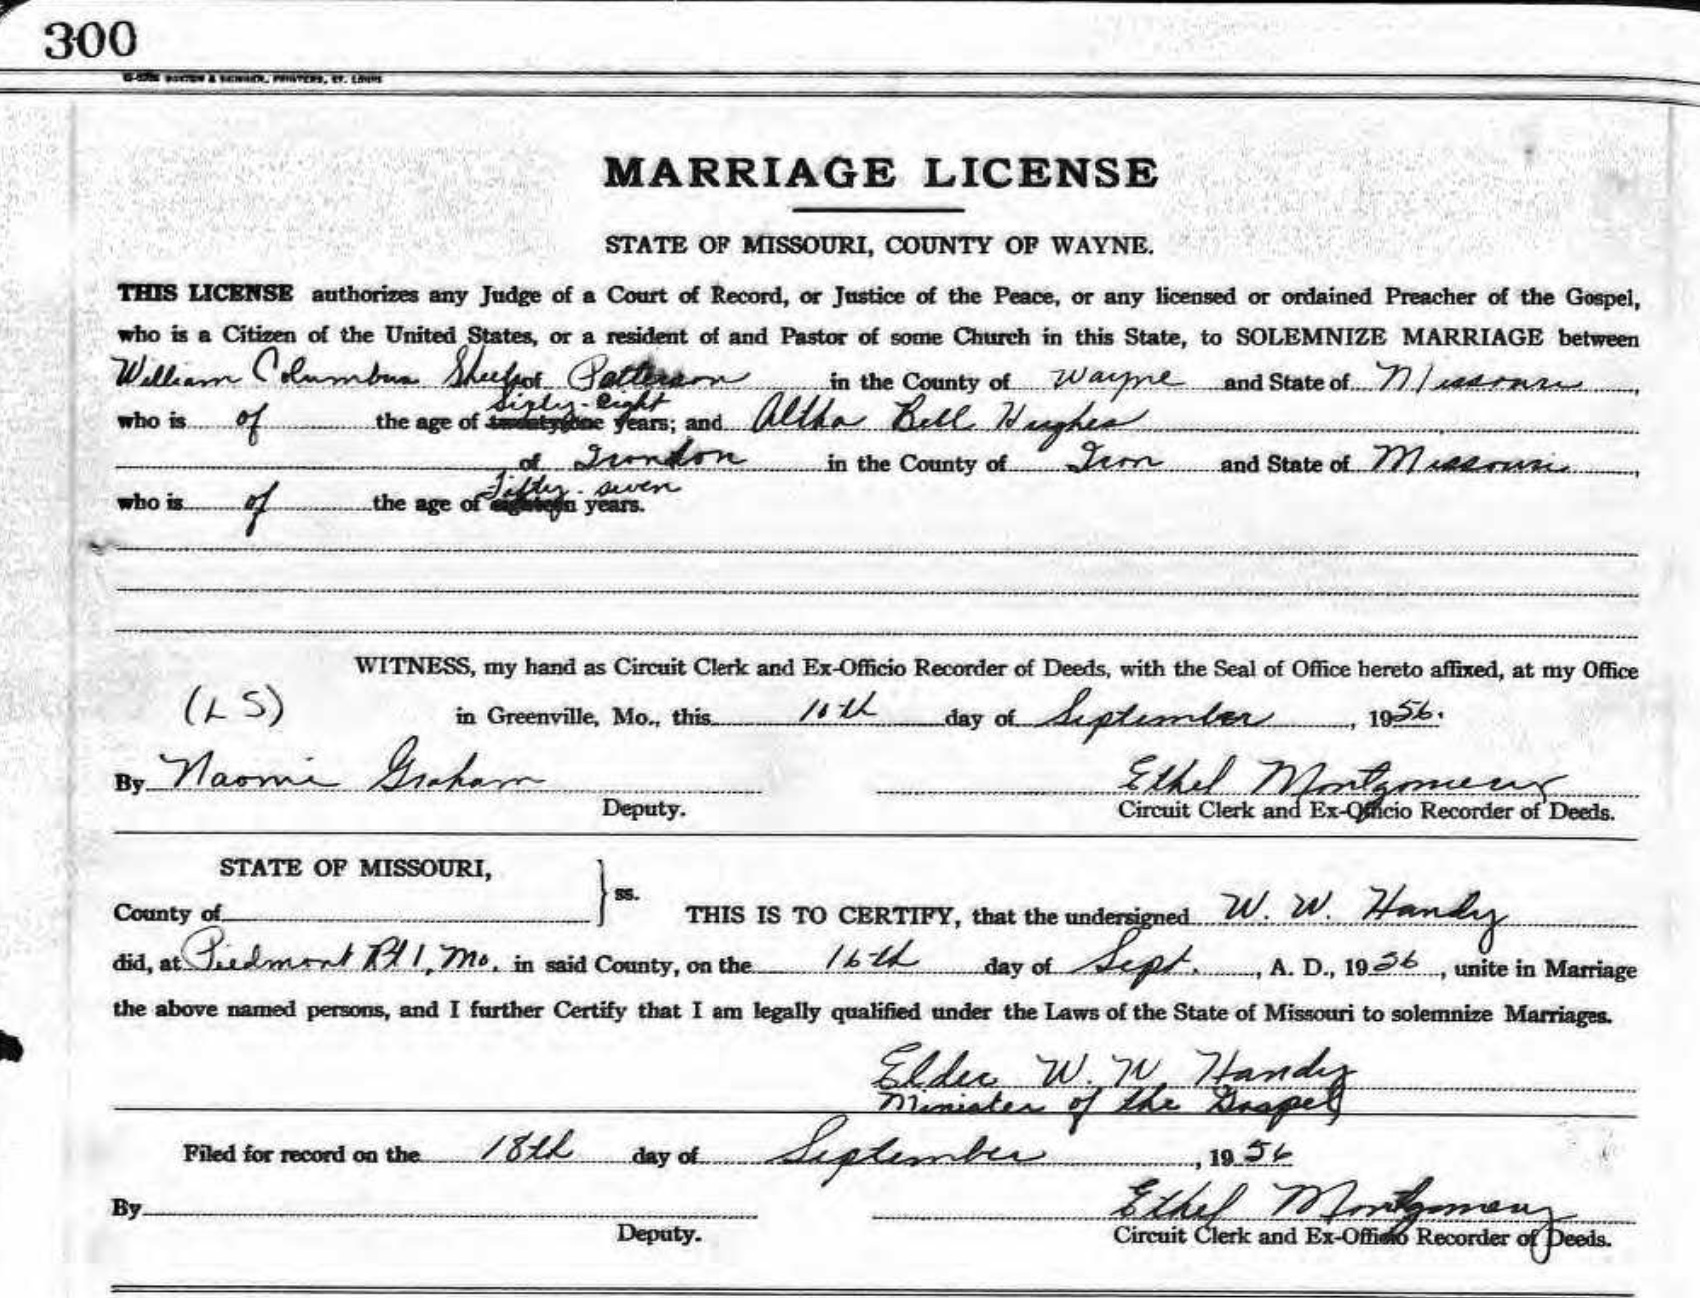 300
MARRIAGE LICENSE
STATE OF MISSOURI, COUNTY OF WAYNE.
THIS LICENSE authorizes any Judge of a Court of Record, or Justice of the Peace, or any licensed or ordained Preacher of the Gospel,
who is a Citizen of the United States, or a resident of and Pastor of some Church in this State, to SOLEMNIZE MARRIAGE between
William Columbus of Patterson in the County of Wayne and State of Missouri,
Sixty-eight
who is of the age of twentyone years; and Altha Bell Hughes
of Irondon in the County of Iron and State of Missouri,
Fifty-seven
who is of the age of eighteen years.
WITNESS, my hand as Circuit Clerk and Ex-Officio Recorder of Deeds, with the Seal of Office hereto affixed, at my Office
(LS) in Greenville, Mo., this day of September, 1956.
By Naomi Graham Ethel Montgomery
Deputy. Circuit Clerk and Ex-Officio Recorder of Deeds.
STATE OF MISSOURI,
County of } ss. THIS IS TO CERTIFY, that the undersigned W. W. Handy
did, at Piedmont Rt 1, Mo. in said County, on the 16th day of Sept., A. D., 1956, unite in Marriage
the above named persons, and I further Certify that I am legally qualified under the Laws of the State of Missouri to solemnize Marriages.
Elder W. W Handy
Minister of the Gospel
Filed for record on the 18th day of September, 1956
By Ethel Montgomery
Deputy. Circuit Clerk and Ex-Officio Recorder of Deeds.